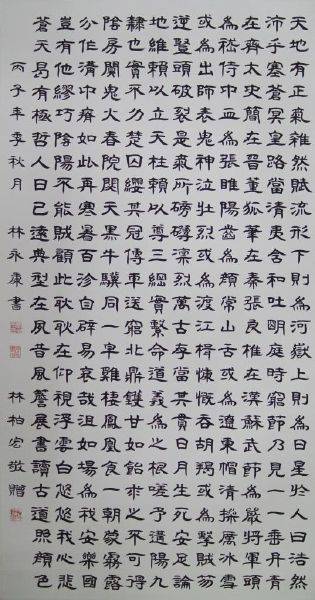 天地有正氣雜然賦流形下則為河嶽上則為日星於人曰浩然
沛乎塞蒼冥皇路當清夷含和吐明庭時窮節乃見一一垂丹青
在齊太史簡在晉董狐筆在秦張良椎在漢蘇武節為嚴將軍頭
為嵇侍中血為張睢陽齒為顏常山舌或為遼東帽清操厲冰雪
或為出師表鬼神泣壯烈或為渡江楫慷慨吞胡羯或為擊賊笏
逆豎頭破裂是氣所磅礴凛烈萬古存當其貫日月生死安足論
地維賴以立天柱賴以尊三綱實繫命道義為之根嗟予遘陽九
隸也實不力楚囚纓其冠傳車送窮北鼎鑊甘如飴求之不可得
陰房闃鬼火春院閟天黑牛驥同一皂雞棲鳳凰食一朝蒙霧露
分作溝中瘠如此再寒暑百沴自辟易哀哉沮洳場為我安樂國
豈有他繆巧陰陽不能賊顧此耿耿在仰視浮雲白悠悠我心悲
蒼天曷有極哲人日已遠典型在夙昔風簷展書讀古道照顏色
丙子年季秋月 林永康書 林柏宏敬贈